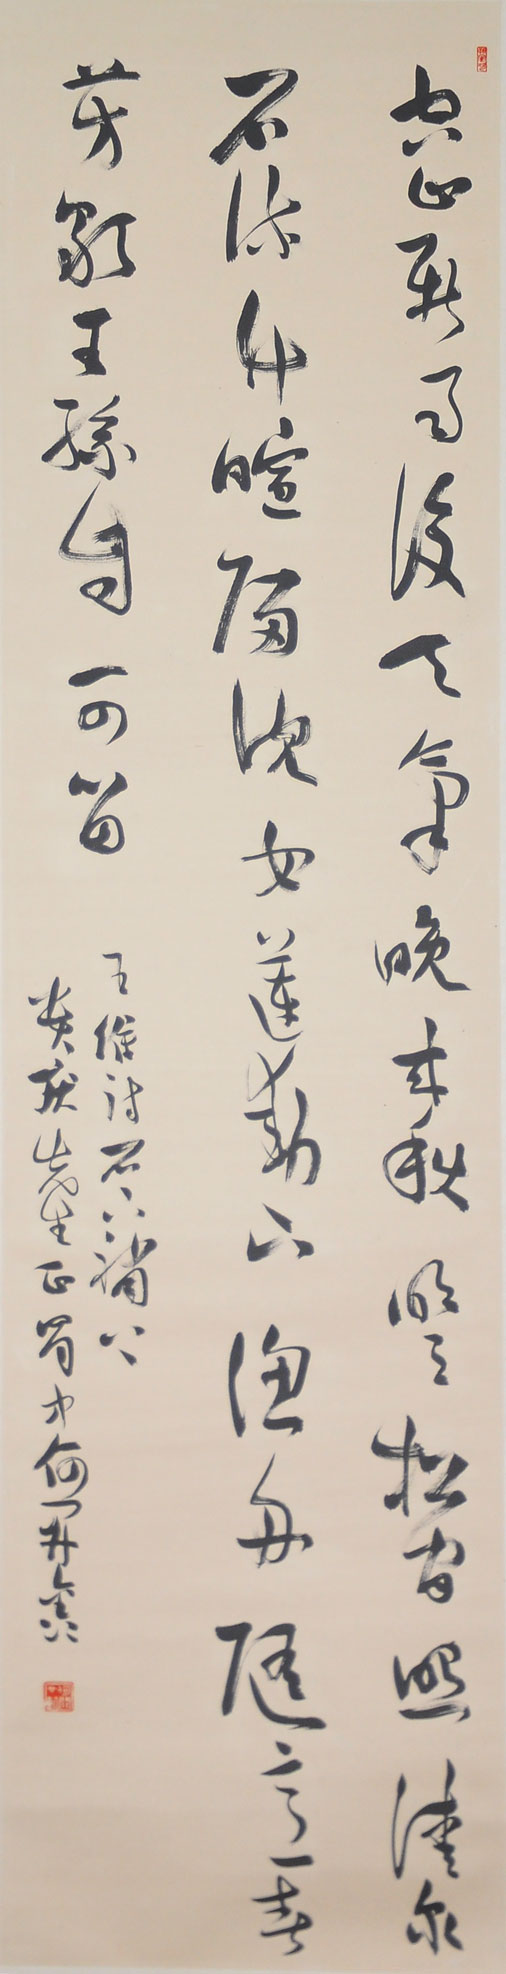 空山新雨後天氣晚來秋明月松間照清泉
石流竹喧歸浣女蓮動下漁舟隨意春
芳歇王孫自可留
王維詩石下補上
先生正蜀中何開鑫